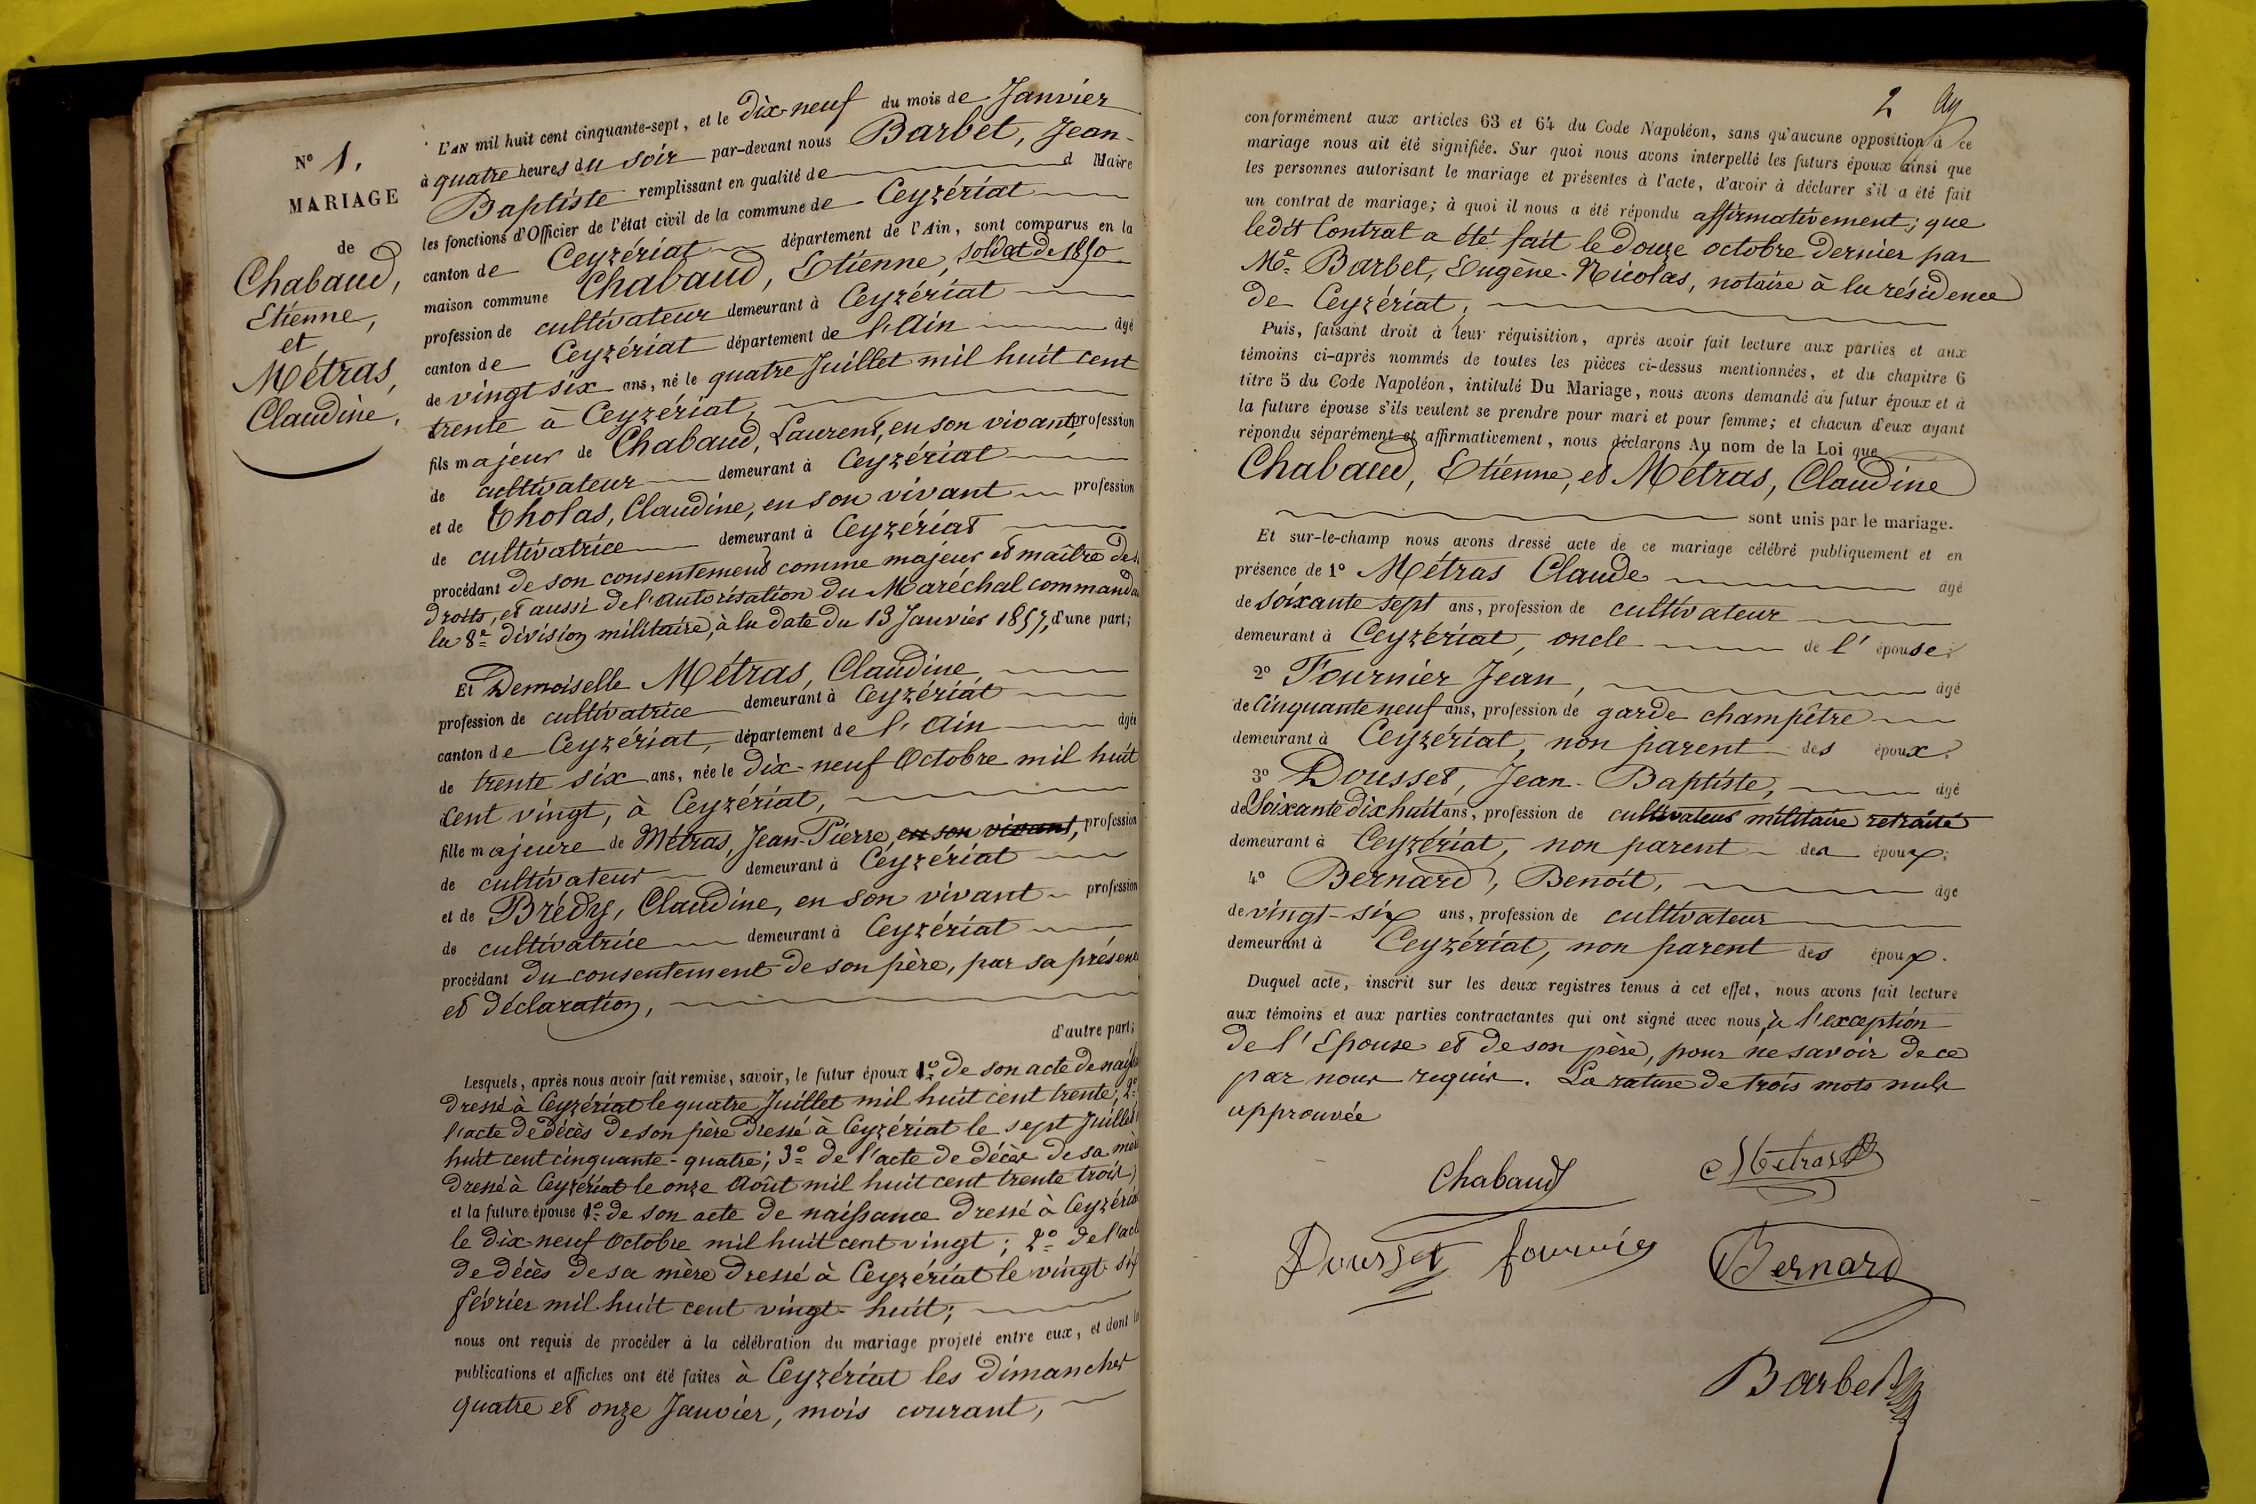 N° 1.
MARIAGE
de
Chabaud,
Etienne,
et
Métras,
Claudine,
L'AN mil huit cent cinquante-sept, et le Dix-neuf du mois de Janvier
à quatre heures du soir par-devant nous Barbet, Jean-
Baptiste remplissant en qualité de d Maire
les fonctions d'Officier de l'état civil de la commune de Ceyzériat
canton de Ceyzériat département de l'Ain, sont comparus en la
maison commune Chabaud, Etienne, soldat de 1850
profession de cultivateur demeurant à Ceyzériat
canton de Ceyzériat département de l'Ain âgé
de vingt six ans, né le quatre Juillet mil huit cent
trente à Ceyzériat,
fils majeur de Chabaud, Laurent, en son vivant, profession
de cultivateur demeurant à Ceyzériat
et de Tholas, Claudine, en son vivant profession
de cultivatrice demeurant à Ceyzériat
procédant de son consentement comme majeur et maître de
droits, et aussi de l'autorisation du Maréchal command
la 8e division militaire, à la date du 13 Janvier 1857, d'une part;
Et Demoiselle Métras, Claudine
profession de cultivatrice demeurant à Ceyzériat
canton de Ceyzériat, département de l'Ain âgée
de trente six ans, née le Dix-neuf Octobre mil huit
cent vingt, à Ceyzériat,
fille majeure de Métras, Jean-Pierre, en son vivant, profession
de cultivateur demeurant à Ceyzériat
et de Brédy, Claudine, en son vivant profession
de cultivatrice demeurant à Ceyzériat
procédant du consentement de son père, par sa présen
et déclaration,
d'autre part;
Lesquels, après nous avoir fait remise, savoir, le futur époux 1° de son acte de naiss
dressé à Ceyzériat le quatre Juillet mil huit cent trente; 2°
l'acte de décès de son père dressé à Ceyzériat le sept Juillet
huit cent cinquante-quatre; 3° de l'acte de décès de sa mè
dressé à Ceyzériat le onze Août mil huit cent trente trois;
et la future épouse 1° de son acte de naissance dressé à Ceyzéria
le dix-neuf Octobre mil huit cent vingt; 2° de l'act
de décès de sa mère dressé à Ceyzériat le vingt-six
février mil huit cent vingt-huit;
nous ont requis de procéder à la célébration du mariage projeté entre eux, et dont
publications et affiches ont été faites à Ceyzériat les dimanches
quatre et onze Janvier, mois courant,
2
conformément aux articles 63 et 64 du Code Napoléon, sans qu'aucune opposition à ce
mariage nous ait été signifiée. Sur quoi nous avons interpellé les futurs époux ainsi que
les personnes autorisant le mariage et présentes à l'acte, d'avoir à déclarer s'il a été fait
un contrat de mariage; à quoi il nous a été répondu affirmativement; que
ledit Contrat a été fait le douze octobre dernier par
Me Barbet, Eugène-Nicolas, notaire à la résidence
de Ceyzériat;
Puis, faisant droit à leur réquisition, après avoir fait lecture aux parties et aux
témoins ci-après nommés de toutes les pièces ci-dessus mentionnées, et du chapitre 6
titre 5 du Code Napoléon, intitulé Du Mariage, nous avons demandé au futur époux et à
la future épouse s'ils veulent se prendre pour mari et pour femme; et chacun d'eux ayant
répondu séparément et affirmativement, nous déclarons Au nom de la Loi que
Chabaud, Etienne, et Métras, Claudine
sont unis par le mariage.
Et sur-le-champ nous avons dressé acte de ce mariage célébré publiquement et en
présence de 1° Métras Claude âgé
de soixante sept ans, profession de cultivateur
demeurant à Ceyzériat, oncle de l'épouse;
2° Fournier Jean, âgé
de Cinquante neuf ans, profession de garde champêtre
demeurant à Ceyzériat, non parent des époux;
3° Dousset, Jean-Baptiste, âgé
de Soixante dix huit ans, profession de cultivateur militaire retraité
demeurant à Ceyzériat, non parent des époux;
4° Bernard, Benoît, âgé
de vingt-six ans, profession de cultivateur
demeurant à Ceyzériat, non parent des époux.
Duquel acte, inscrit sur les deux registres tenus à cet effet, nous avons fait lecture
aux témoins et aux parties contractantes qui ont signé avec nous, à l'exception
de l'Epouse et de son père, pour ne savoir de ce
par nous requis. La rature de trois mots nuls
approuvée
Chabaud Metras
Dousset fournier Bernard
Barbet